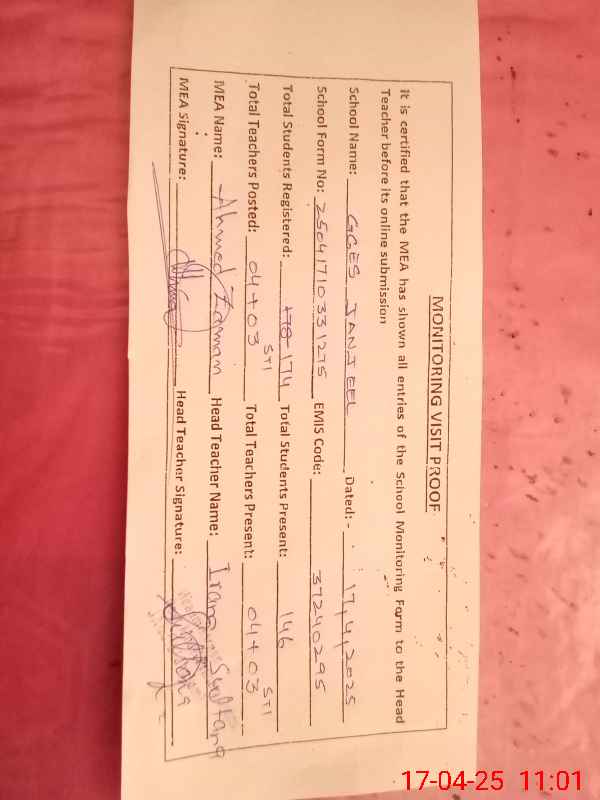 MONITORING VISIT PROOF
It is certified that the MEA has shown all entries of the School Monitoring Form to the Head
Teacher before its online submission
School Name: GGES JANJEEL Dated:- 17,4,2025
School Form No: 25041710331275 EMIS Code: 37240295
Total Students Registered: 178 174 Total Students Present: 146
Total Teachers Posted: 04+03 STI Total Teachers Present: 04+03 STI
MEA Name: Ahmed Zaman Head Teacher Name: Irana Sultana
MEA Signature: Head Teacher Signature:
17-04-25 11:01